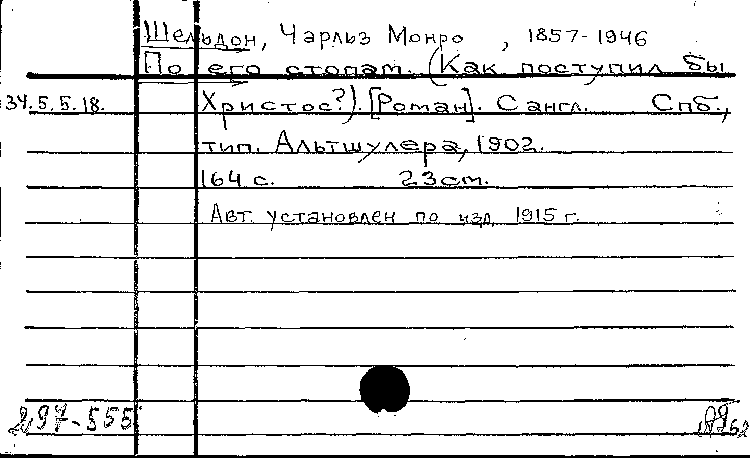 Шельдон, Чарльз Монро , 1857-1946
По его стопам. (Как поступил бы
34.5.5.18. Христос?). [Роман]. С англ. Спб.,
тип. Альтшулера, 1902.
164 с. 23 cm.
Авт. установлен по изд. 1915 г.
297-555